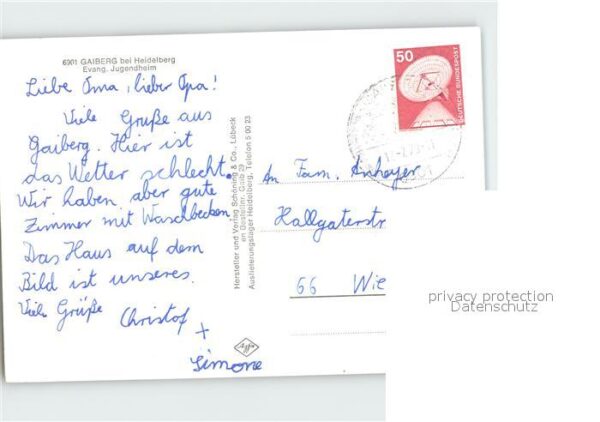 6901 GAIBERG bei Heidelberg
Evang. Jugendheim
Liebe Oma, lieber Opa!
Viele Grüße aus
Gaiberg. Hier ist
das Wetter schlecht.
Wir haben aber gute
Zimmer mit Waschbecken
Das Haus auf dem
Bild ist unseres.
Viele Grüße
Christof
+
Simone
Hersteller und Verlag Schöning & Co., Lübeck
Auslieferungslager Heidelberg, Telefon 5 00 23
Agfa
50
DEUTSCHE BUNDESPOST
An Fam.
Hallgaterstr
66 Wie
privacy protection
Datenschutz